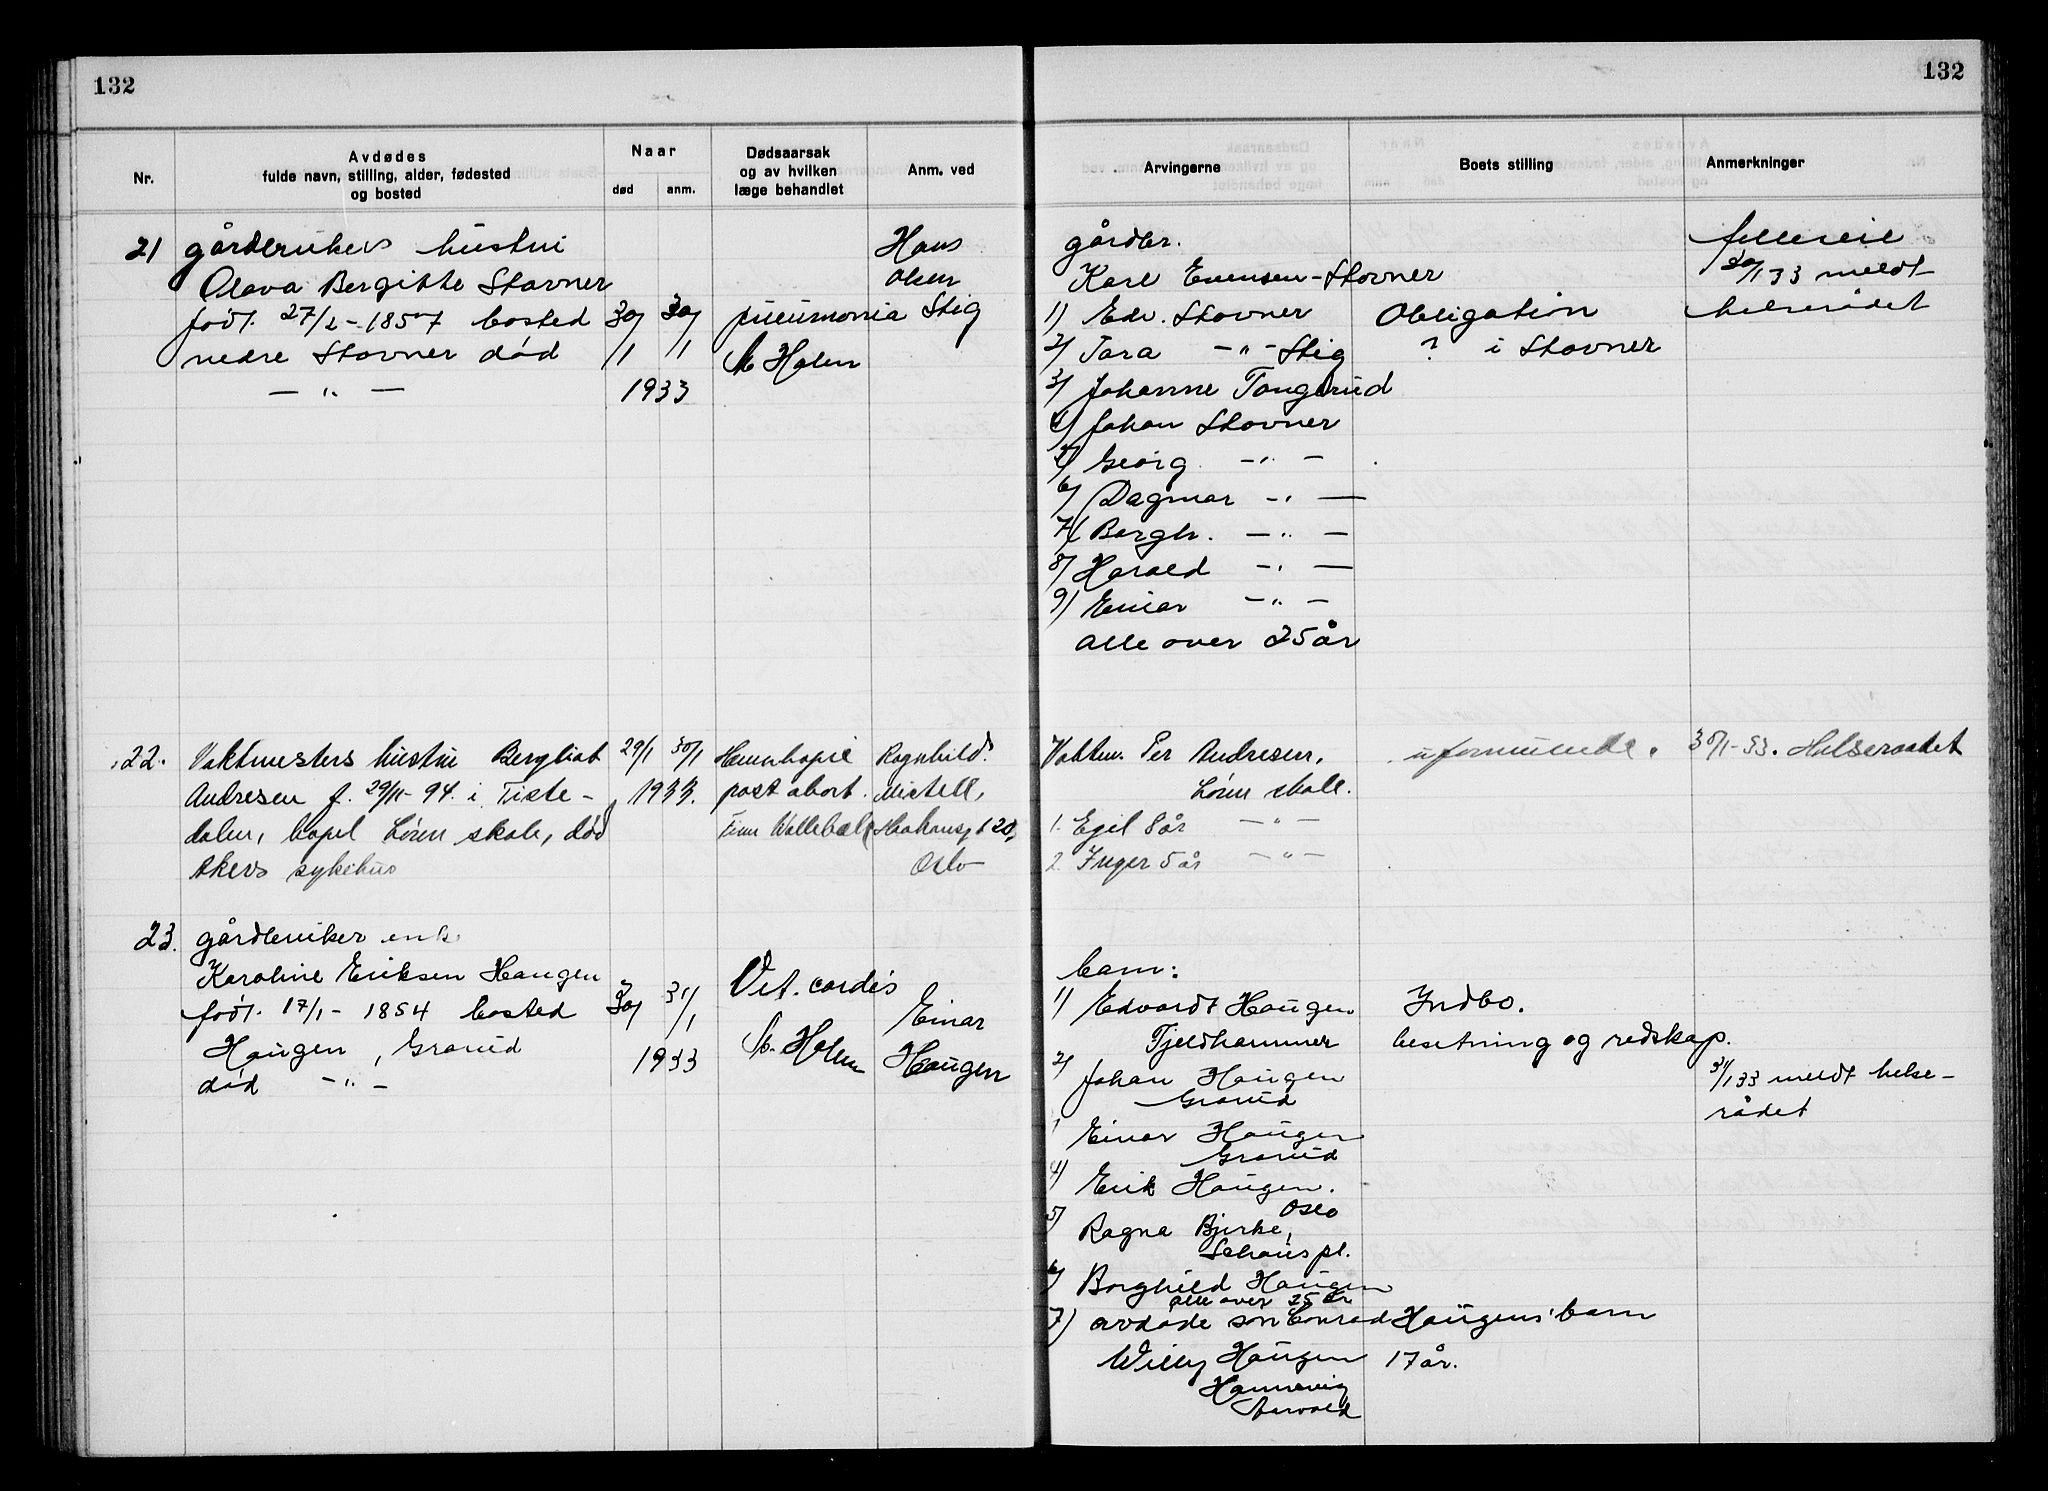 132
132
Nr.
Avdødes
fulde navn, stilling, alder, fødested
og bosted
Naar
død
anm.
Dødsaarsak
og av hvilken
læge behandlet
Anm. ved
Arvingerne
Boets stilling
Anmerkninger
21
gårdbrukers hustru
Olava Bergitte Stovner
født. 27/2-1857 bosted
nedre Stovner død
— " —
30/1
30/1
1933
pneumonia
Holen
Hans
Olsen
Stig
gårdbr.
Karl Evensen-Stovner
1) Edv. Stovner
2) Tora —"— Stig
3) Johanne Tangerud
4) Johan Stovner
5) Georg —"—
6) Dagmar —"—
7) Borgh. —"—
8) Harald —"—
9) Einar —"—
alle over 25 år
Obligation
? i Stovner
felleseie
30/1 33 meldt
helserådet
22.
Vaktmesters hustru Bergliot
Andresen f. 29/11-94. i Tiste-
dalen, bopel Løren skole, død
Akers sykehus
29/1
30/1
1933.
post abort.
Ragnhild
Oslo
Vaktm. Per Andresen,
Løren skole.
1. Egil 8 år —"—
2. Inger 5 år —"—
uformuende.
30/1-33. Helseraadet
23.
gårdbruker enke
Karoline Eriksen Haugen
født. 17/1-1854 bosted
Haugen, Grorud
død —"—
30/1
31/1
1933
Vit. cordis
Holen
Einar
Haugen
barn:
1) Edvardt Haugen
Fjeldhammer
2) Johan Haugen
Grorud
Einar Haugen
Grorud
4) Erik Haugen.
Oslo
5) Ragna Bjerke,
Schous pl.
6) Borghild Haugen
alle over 25 år
7) avdøde søn Conrad Haugens barn
Willy Haugen 17 år.
Indbo.
besetning og redskap.
31/1 33 meldt helse-
rådet